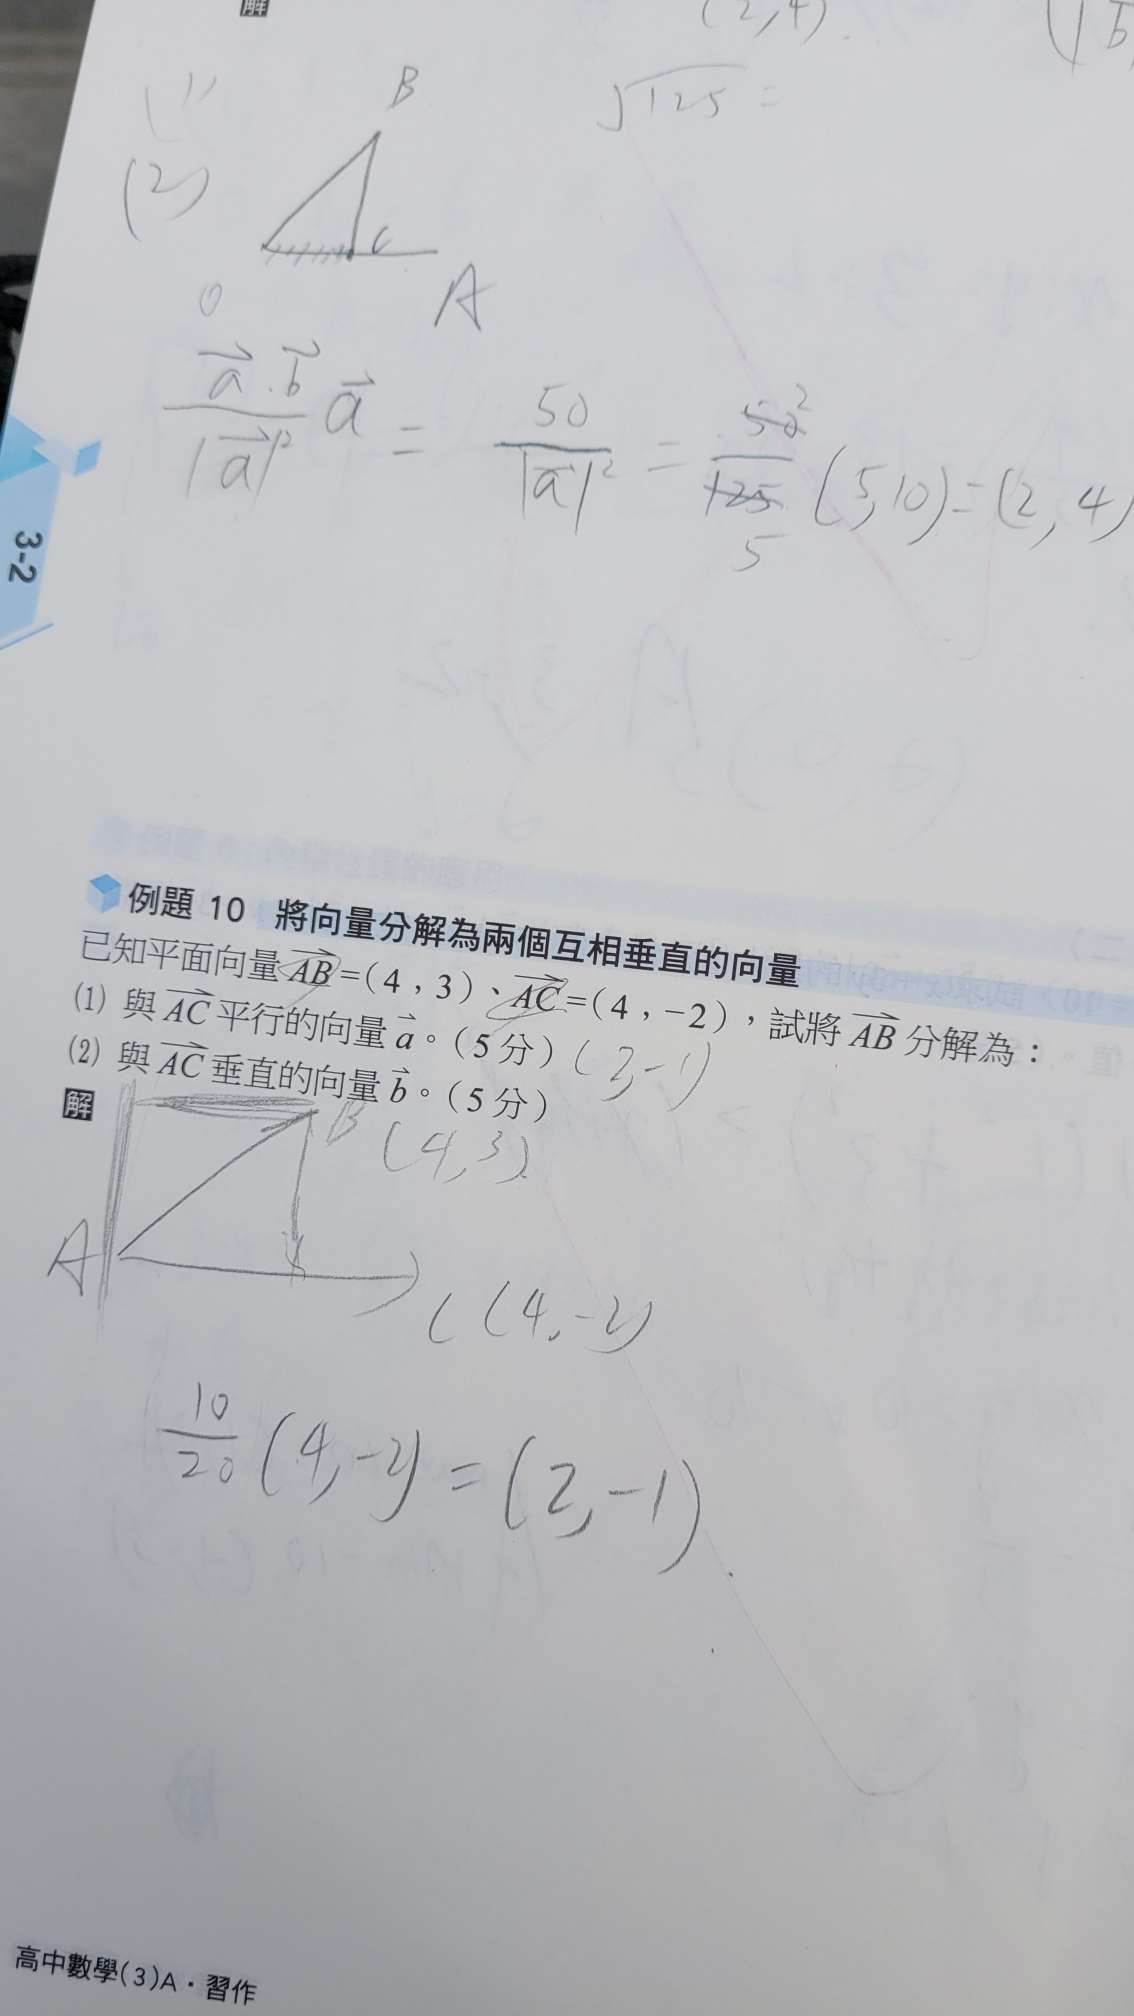 解
(2,4)
√125 =
(1)
B
(2)
C
O
A
a⃗·b⃗/|a⃗|² a⃗ = 50/|a⃗|² = 50/125 (5,10) = (2,4)
2
5
3-2
例題 10 將向量分解為兩個互相垂直的向量
已知平面向量 AB⃗=(4,3)、AC⃗=(4,-2),試將 AB⃗ 分解為:
(1) 與 AC⃗ 平行的向量 a⃗。(5分) (2,-1)
(2) 與 AC⃗ 垂直的向量 b⃗。(5分)
解
B (4,3)
A
C (4,-2)
10/20 (4,-2) = (2,-1)
高中數學(3)A・習作